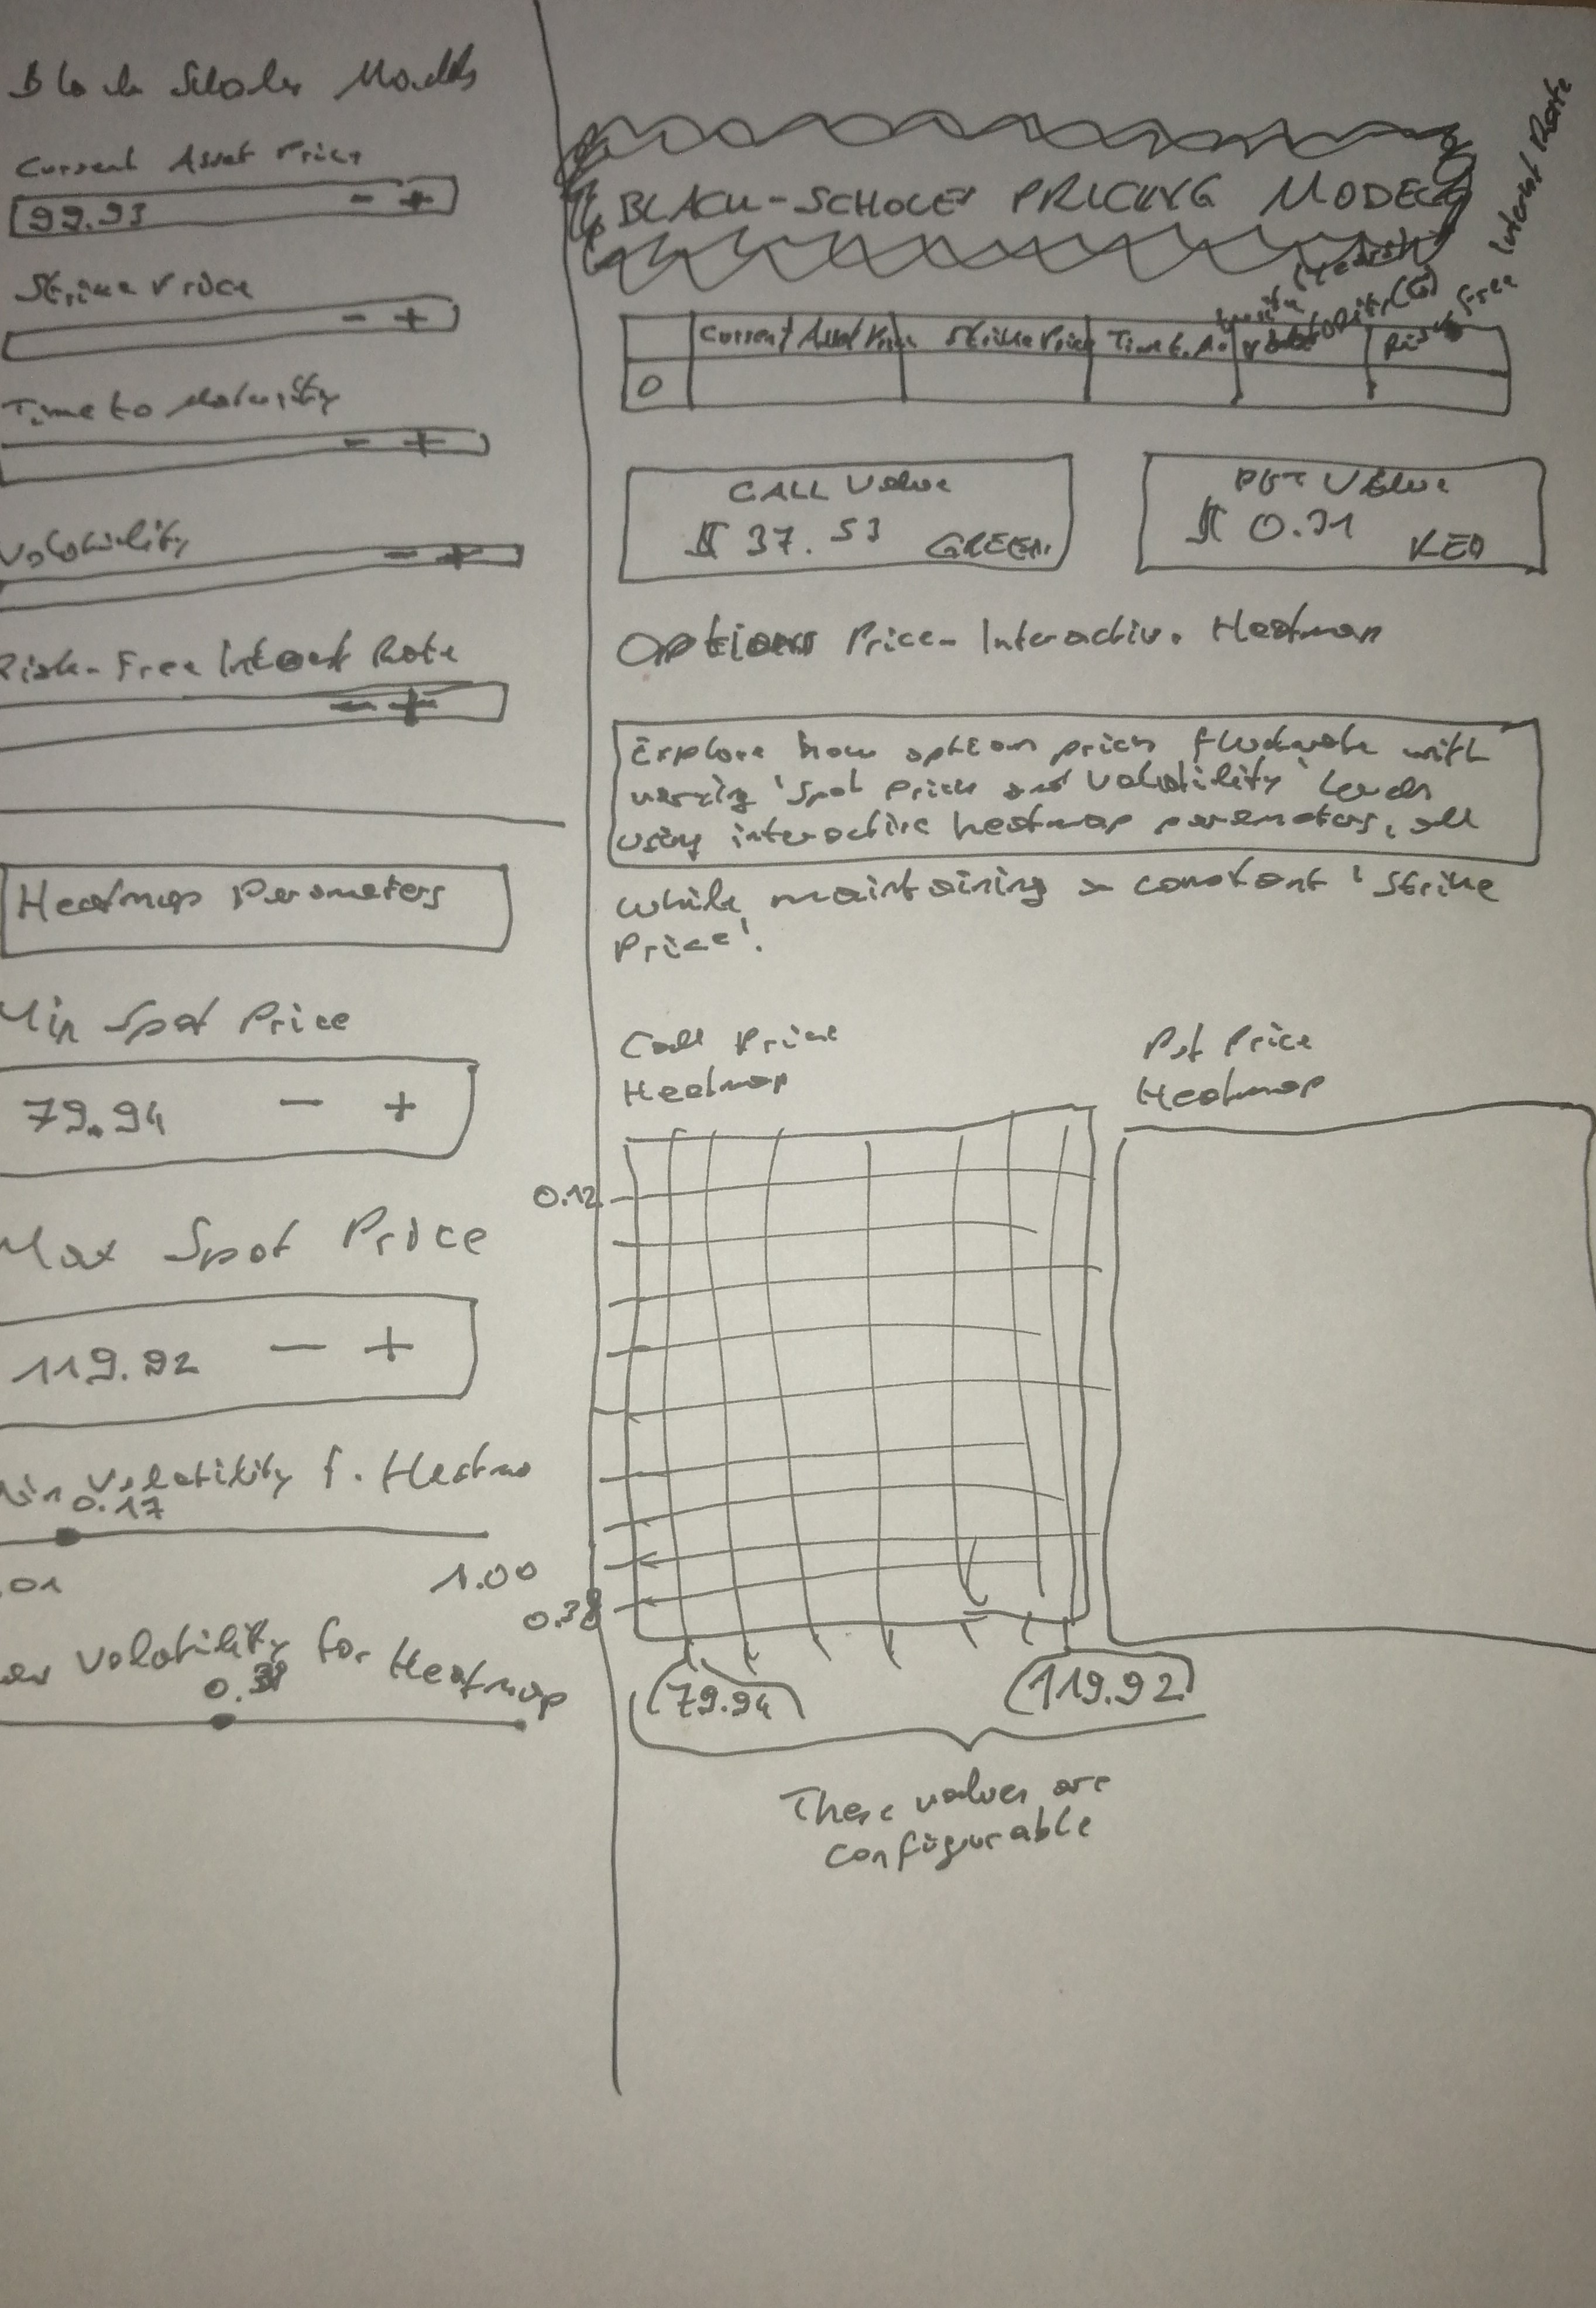 Black Scholes Models
Current Asset Price
99.93 - +
Strike Price
- +
Time to Maturity
- +
Volatility
- +
Risk-Free Interest Rate
- +
Heatmap Parameters
Min Spot Price
79.94 - +
Max Spot Price
119.92 - +
Min Volatility f. Heatma
0.17
.01 1.00
Volatility for Heatmap
BLACK-SCHOLES PRICING MODEL
Current Asset Price Strike Price Time t. (Years) Risk Free Interest Rate
0
CALL Value
$ 37.53 GREEN
PUT Value
$ 0.31 RED
Options Price - Interactiv. Heatmap
Explore how option prices fluctuate with
varying 'Spot Prices and Volatility' levels
using interactive heatmap parameters, all
while maintaining a constant 'Strike
Price'.
Call Price
Heatmap
Put Price
Heatmap
0.12
0.38
79.94 119.92
These values are
configurable